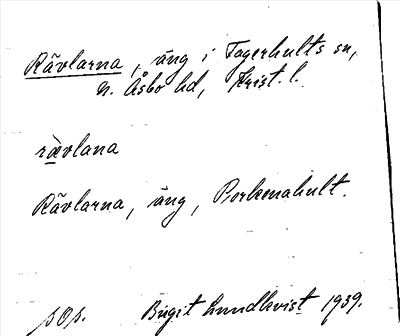 Rävlarna, äng i Fagerhults sn,
N. Åsbo hd, Krist. l.
rævlana
Rävlarna, äng, Porkenahult.
sOp. Birgit Lundkvist 1939.